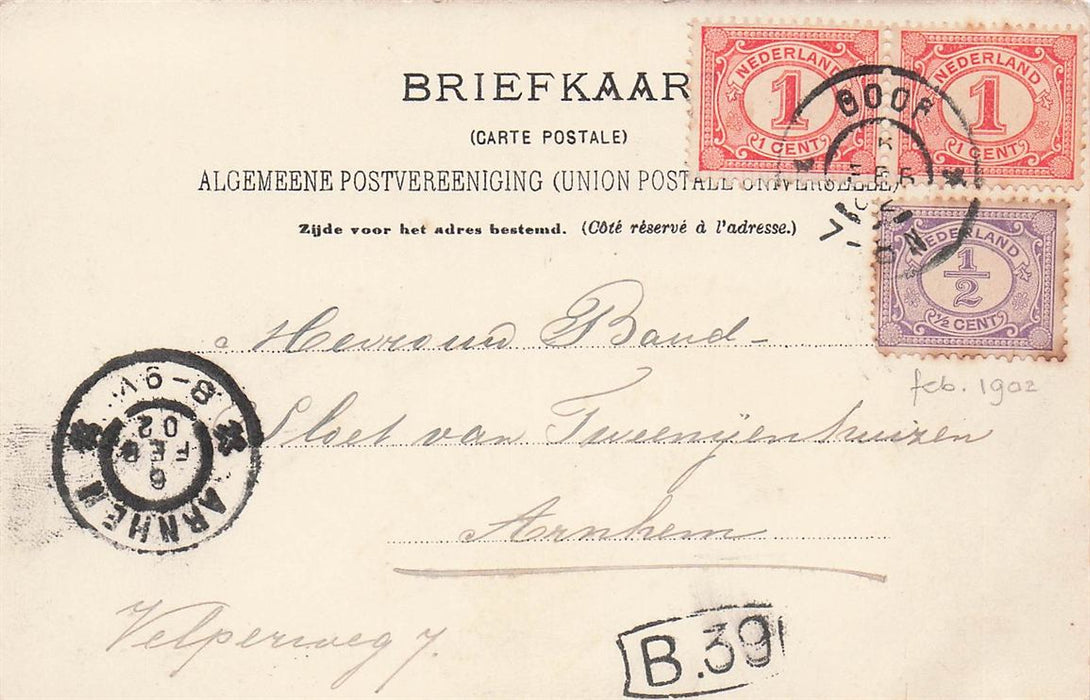 BRIEFKAAR
(CARTE POSTALE)
ALGEMEENE POSTVEREENIGING (UNION POSTALE UNIVERSELLE)
Zijde voor het adres bestemd. (Côté réservé à l'adresse.)
NEDERLAND
1
1 CENT
NEDERLAND
1
1 CENT
GOOR
FEB
NEDERLAND
1/2
1/2 CENT
feb. 1902
Mevrouw Baud-
Sloet van Tweenijenhuizen
Arnhem
Velperweg 7.
ARNHEM
6
FEB
02
8-9V
B.39